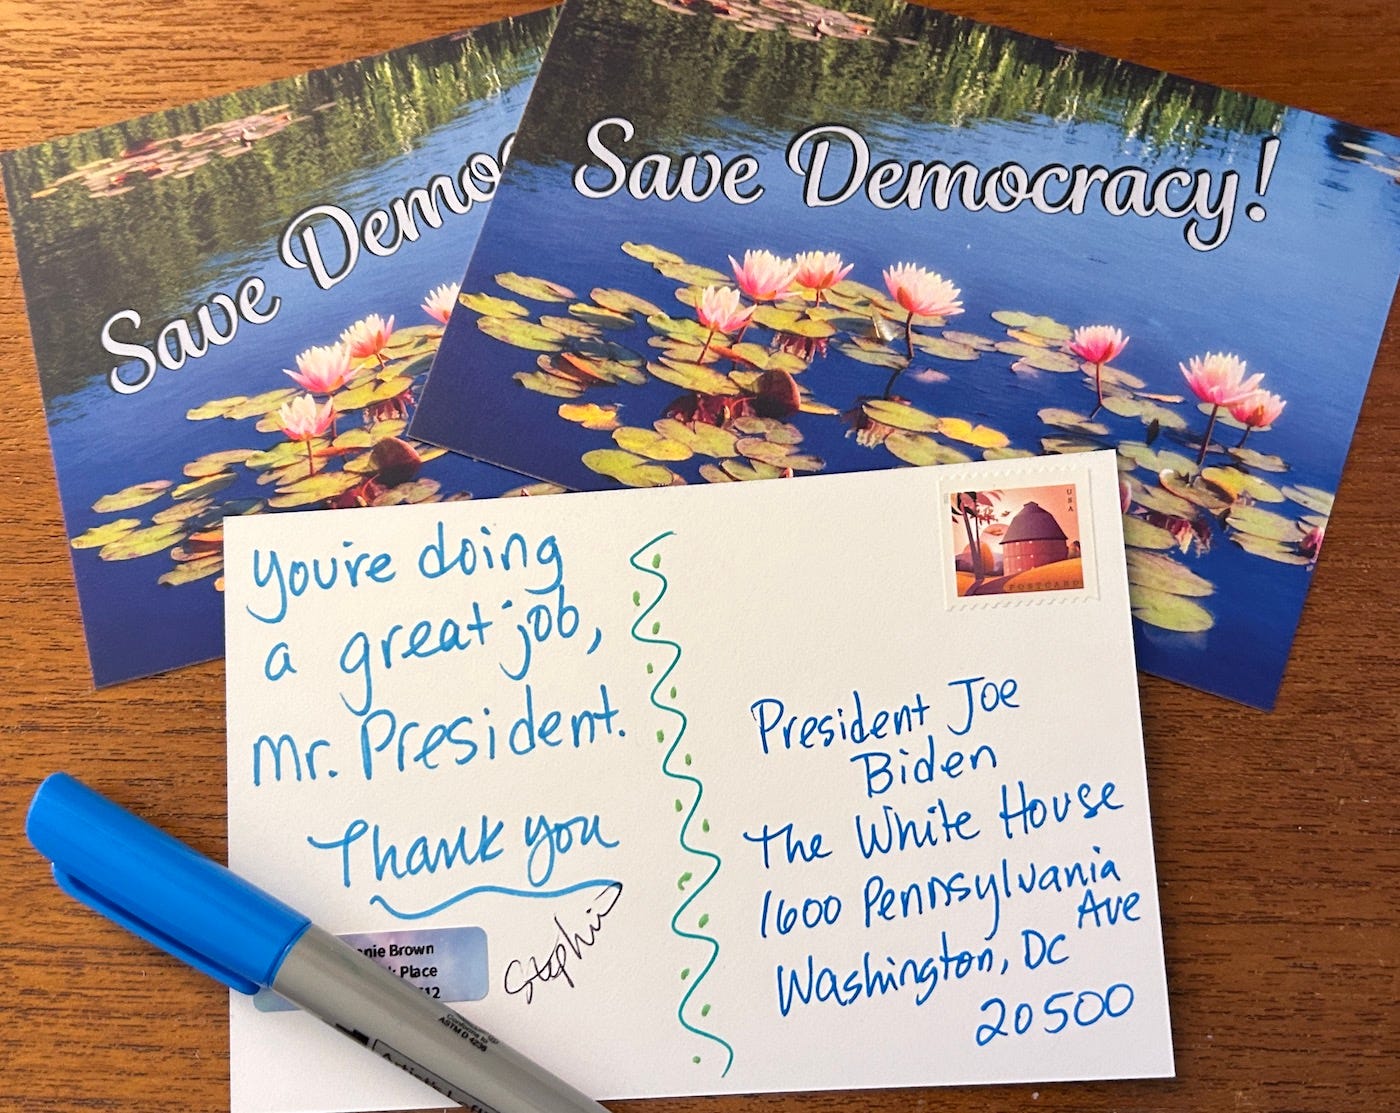 Save Demo
Save Democracy!
You're doing
a great job,
Mr. President.
Thank you
Stephie
nie Brown
Place
12
USA
POSTCARD
President Joe
Biden
The White House
1600 Pennsylvania
Ave
Washington, DC
20500
Conforms to
ASTM D 4236